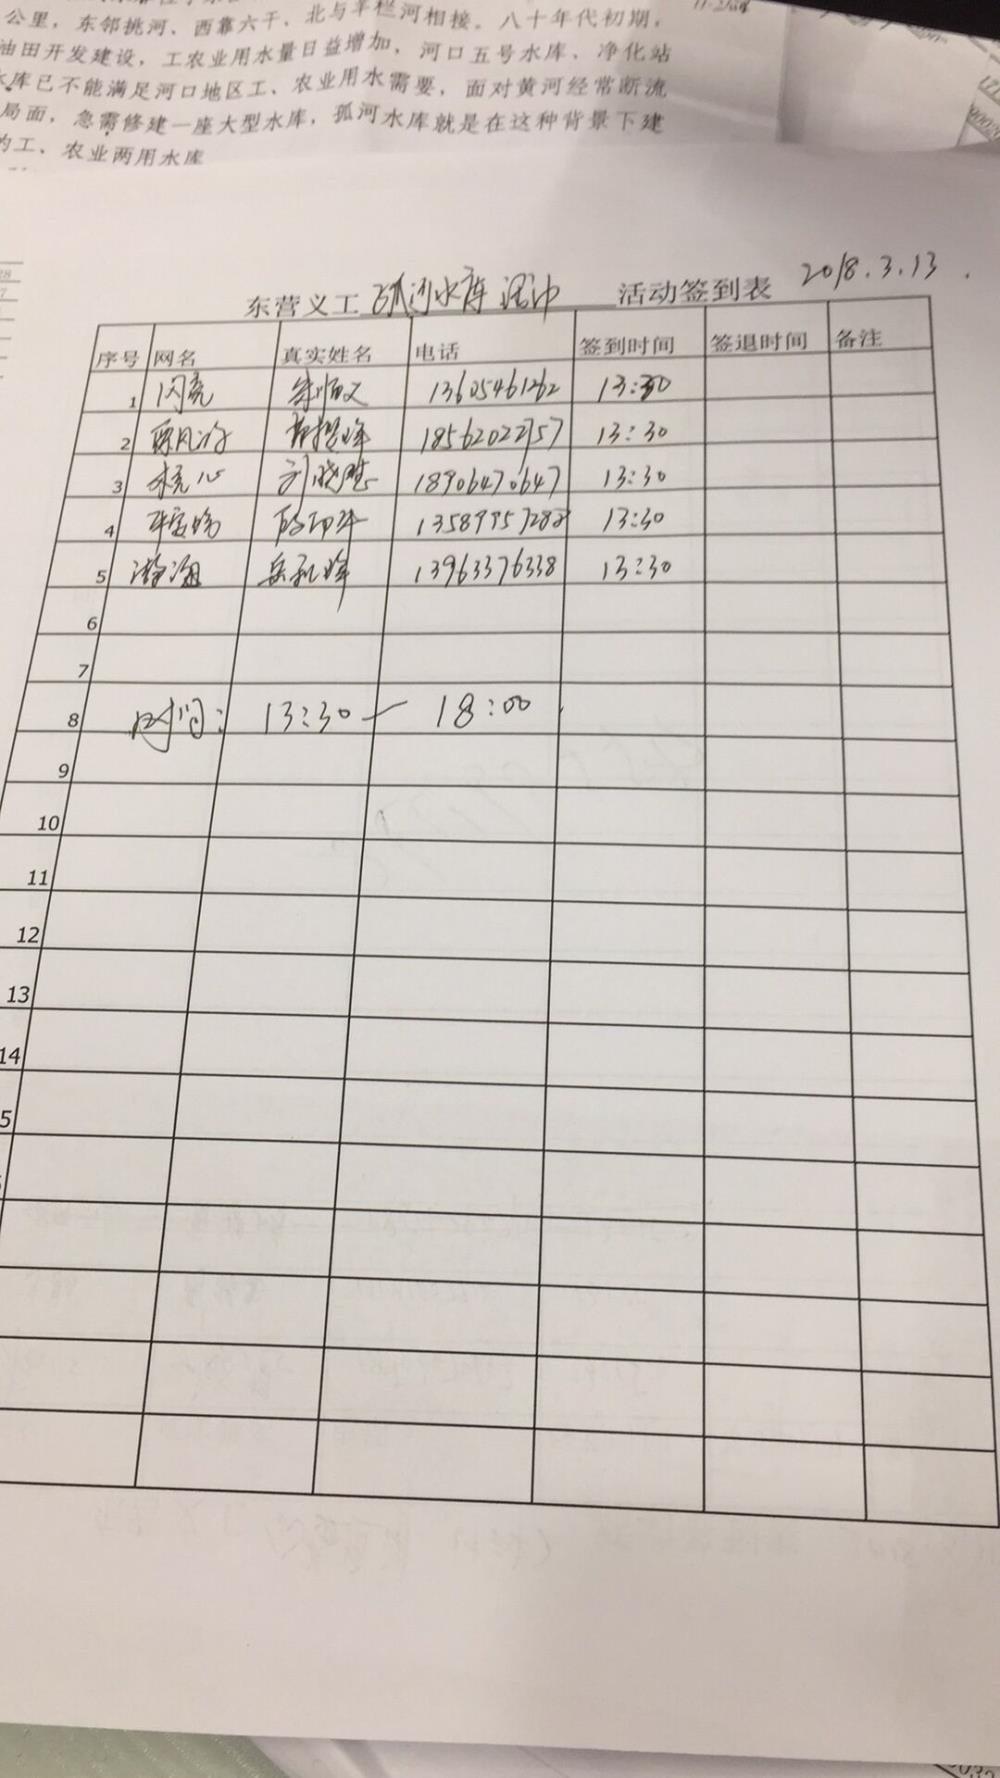 公里，东邻挑河、西靠六干、北与羊栏河相接。八十年代初期，
油田开发建设，工农业用水量日益增加，河口五号水库、净化站
水库已不能满足河口地区工、农业用水需要，面对黄河经常断流
局面，急需修建一座大型水库，孤河水库就是在这种背景下建
的工、农业两用水库
东营义工 孤河水库 活动签到表 2018.3.13.
序号 网名 真实姓名 电话 签到时间 签退时间 备注
1 闪亮 13605461262 13:30
2 18562022757 13:30
3 刘晓慧 18906470647 13:30
4 13589957282 13:30
5 13963376338 13:30
6
7
8 时间: 13:30 — 18:00
9
10
11
12
13
14
5